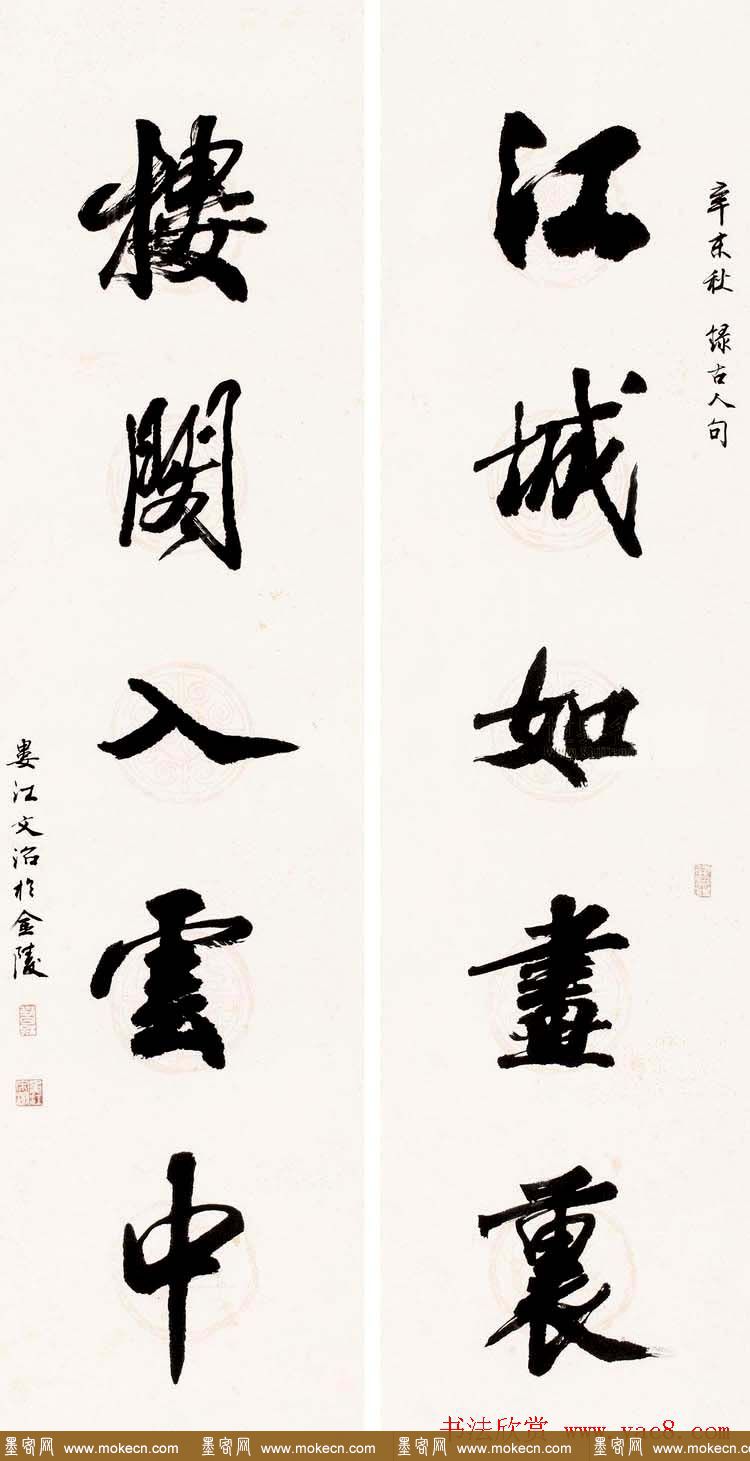 辛未秋 録古人句
江城如畫裏
樓閣入雲中
婁江文治於金陵
书法欣赏 www.yac8.com
墨客网 www.mokecn.com 墨客网 www.mokecn.com 墨客网 www.mokecn.com 墨客网 www.mokecn.com